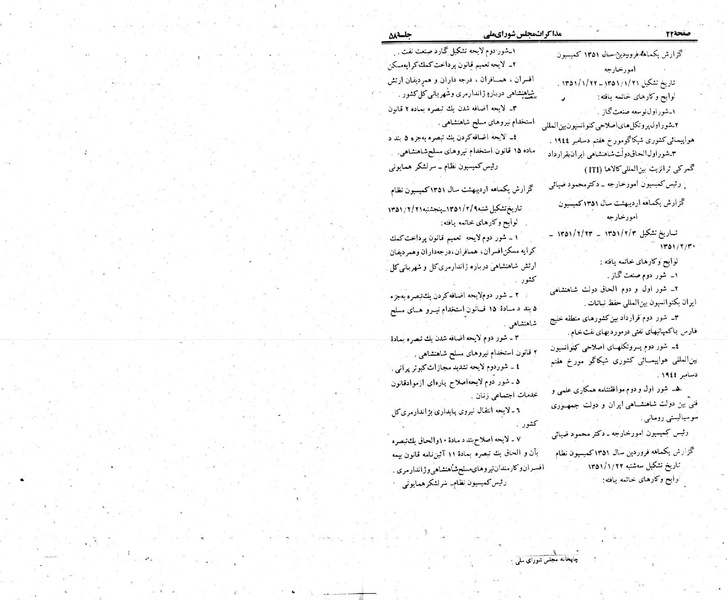 صفحهٔ ۲۲
مذاکرات مجلس شورای ملی
جلسهٔ ۵۸
گزارش یکماهه فروردین سال ۱۳۵۱ کمیسیون
امور خارجه
تاریخ تشکیل ۱۳۵۱/۱/۲۱ - ۱۳۵۱/۱/۲۲ .
لوایح و کارهای خاتمه یافته :
۱ـ شور اول توسعه صنعت گاز .
۲ـ شور اول پروتکل‌های اصلاحی کنوانسیون بین‌المللی
هواپیمائی کشوری شیکاگو مورخ هفتم دسامبر ۱۹۴۴ .
۳ـ شور اول الحاق دولت شاهنشاهی ایران بقرارداد
گمرکی ترانزیت بین‌المللی کالاها (ITI)
رئیس کمیسیون امور خارجه - دکتر محمود ضیائی
گزارش یکماهه اردیبهشت سال ۱۳۵۱ کمیسیون
امور خارجه
تاریخ تشکیل ۱۳۵۱/۲/۳ - ۱۳۵۱/۲/۲۳ -
۱۳۵۱/۲/۳۰
لوایح و کارهای خاتمه یافته :
۱ـ شور دوم صنعت گاز .
۲ـ شور اول و دوم الحاق دولت شاهنشاهی
ایران بکنوانسیون بین‌المللی حفظ نباتات .
۳ـ شور دوم قرارداد بین کشورهای منطقه خلیج
فارس با کمپانیهای نفتی در مورد بهای نفت خام .
۴ـ شور دوم پروتکلهای اصلاحی کنوانسیون
بین‌المللی هواپیمائی کشوری شیکاگو مورخ هفتم
دسامبر ۱۹۴۴ .
۵ـ شور اول و دوم موافقتنامه همکاری علمی و
فنی بین دولت شاهنشاهی ایران و دولت جمهوری
سوسیالیستی رومانی .
رئیس کمیسیون امور خارجه - دکتر محمود ضیائی
گزارش یکماهه فروردین سال ۱۳۵۱ کمیسیون نظام
تاریخ تشکیل سه‌شنبه ۱۳۵۱/۱/۲۲
لوایح و کارهای خاتمه یافته :
۱ـ شور دوم لایحه تشکیل گارد صنعت نفت .
۲ـ لایحه تعمیم قانون پرداخت کمک کرایه مسکن
افسران ، همافران ، درجه داران و همردیفان ارتش
شاهنشاهی درباره ژاندارمری و شهربانی کل کشور .
۳ـ لایحه اضافه شدن یك تبصره بماده ۲ قانون
استخدام نیروهای مسلح شاهنشاهی .
۴ـ لایحه اضافه کردن یك تبصره به جزء ۵ بند د
ماده ۱۵ قانون استخدام نیروهای مسلح شاهنشاهی .
رئیس کمیسیون نظام - سرلشگر همایونی
گزارش یکماهه اردیبهشت سال ۱۳۵۱ کمیسیون نظام
تاریخ تشکیل شنبه ۱۳۵۱/۲/۹ - پنجشنبه ۱۳۵۱/۲/۲۱
لوایح و کارهای خاتمه یافته :
۱ـ شور دوم لایحه تعمیم قانون پرداخت کمك
کرایه مسکن افسران ، همافران ، درجه‌داران و همردیفان
ارتش شاهنشاهی درباره ژاندارمری کل و شهربانی کل
کشور .
۲ـ شور دوم لایحه اضافه کردن یك تبصره به جزء
۵ بند د ماده ۱۵ قانون استخدام نیرو های مسلح
شاهنشاهی .
۳ـ شور دوم لایحه اضافه شدن یك تبصره بماده
۲ قانون استخدام نیروهای مسلح شاهنشاهی .
۴ـ شور دوم لایحه تشدید مجازات کبوتر پرانی .
۵ـ شور دوم لایحه اصلاح پاره‌ای از مواد قانون
خدمات اجتماعی زنان .
۶ـ لایحه انتقال نیروی پایداری بژاندارمری کل
کشور .
۷ـ لایحه اصلاح بند د ماده ۱۰ و الحاق یك تبصره
بآن و الحاق یك تبصره بماده ۱۱ آئین‌نامه قانون بیمه
افسران و کارمندان نیروهای مسلح شاهنشاهی و ژاندارمری .
رئیس کمیسیون نظام - سرلشگر همایونی
چاپخانه مجلس شورای ملی